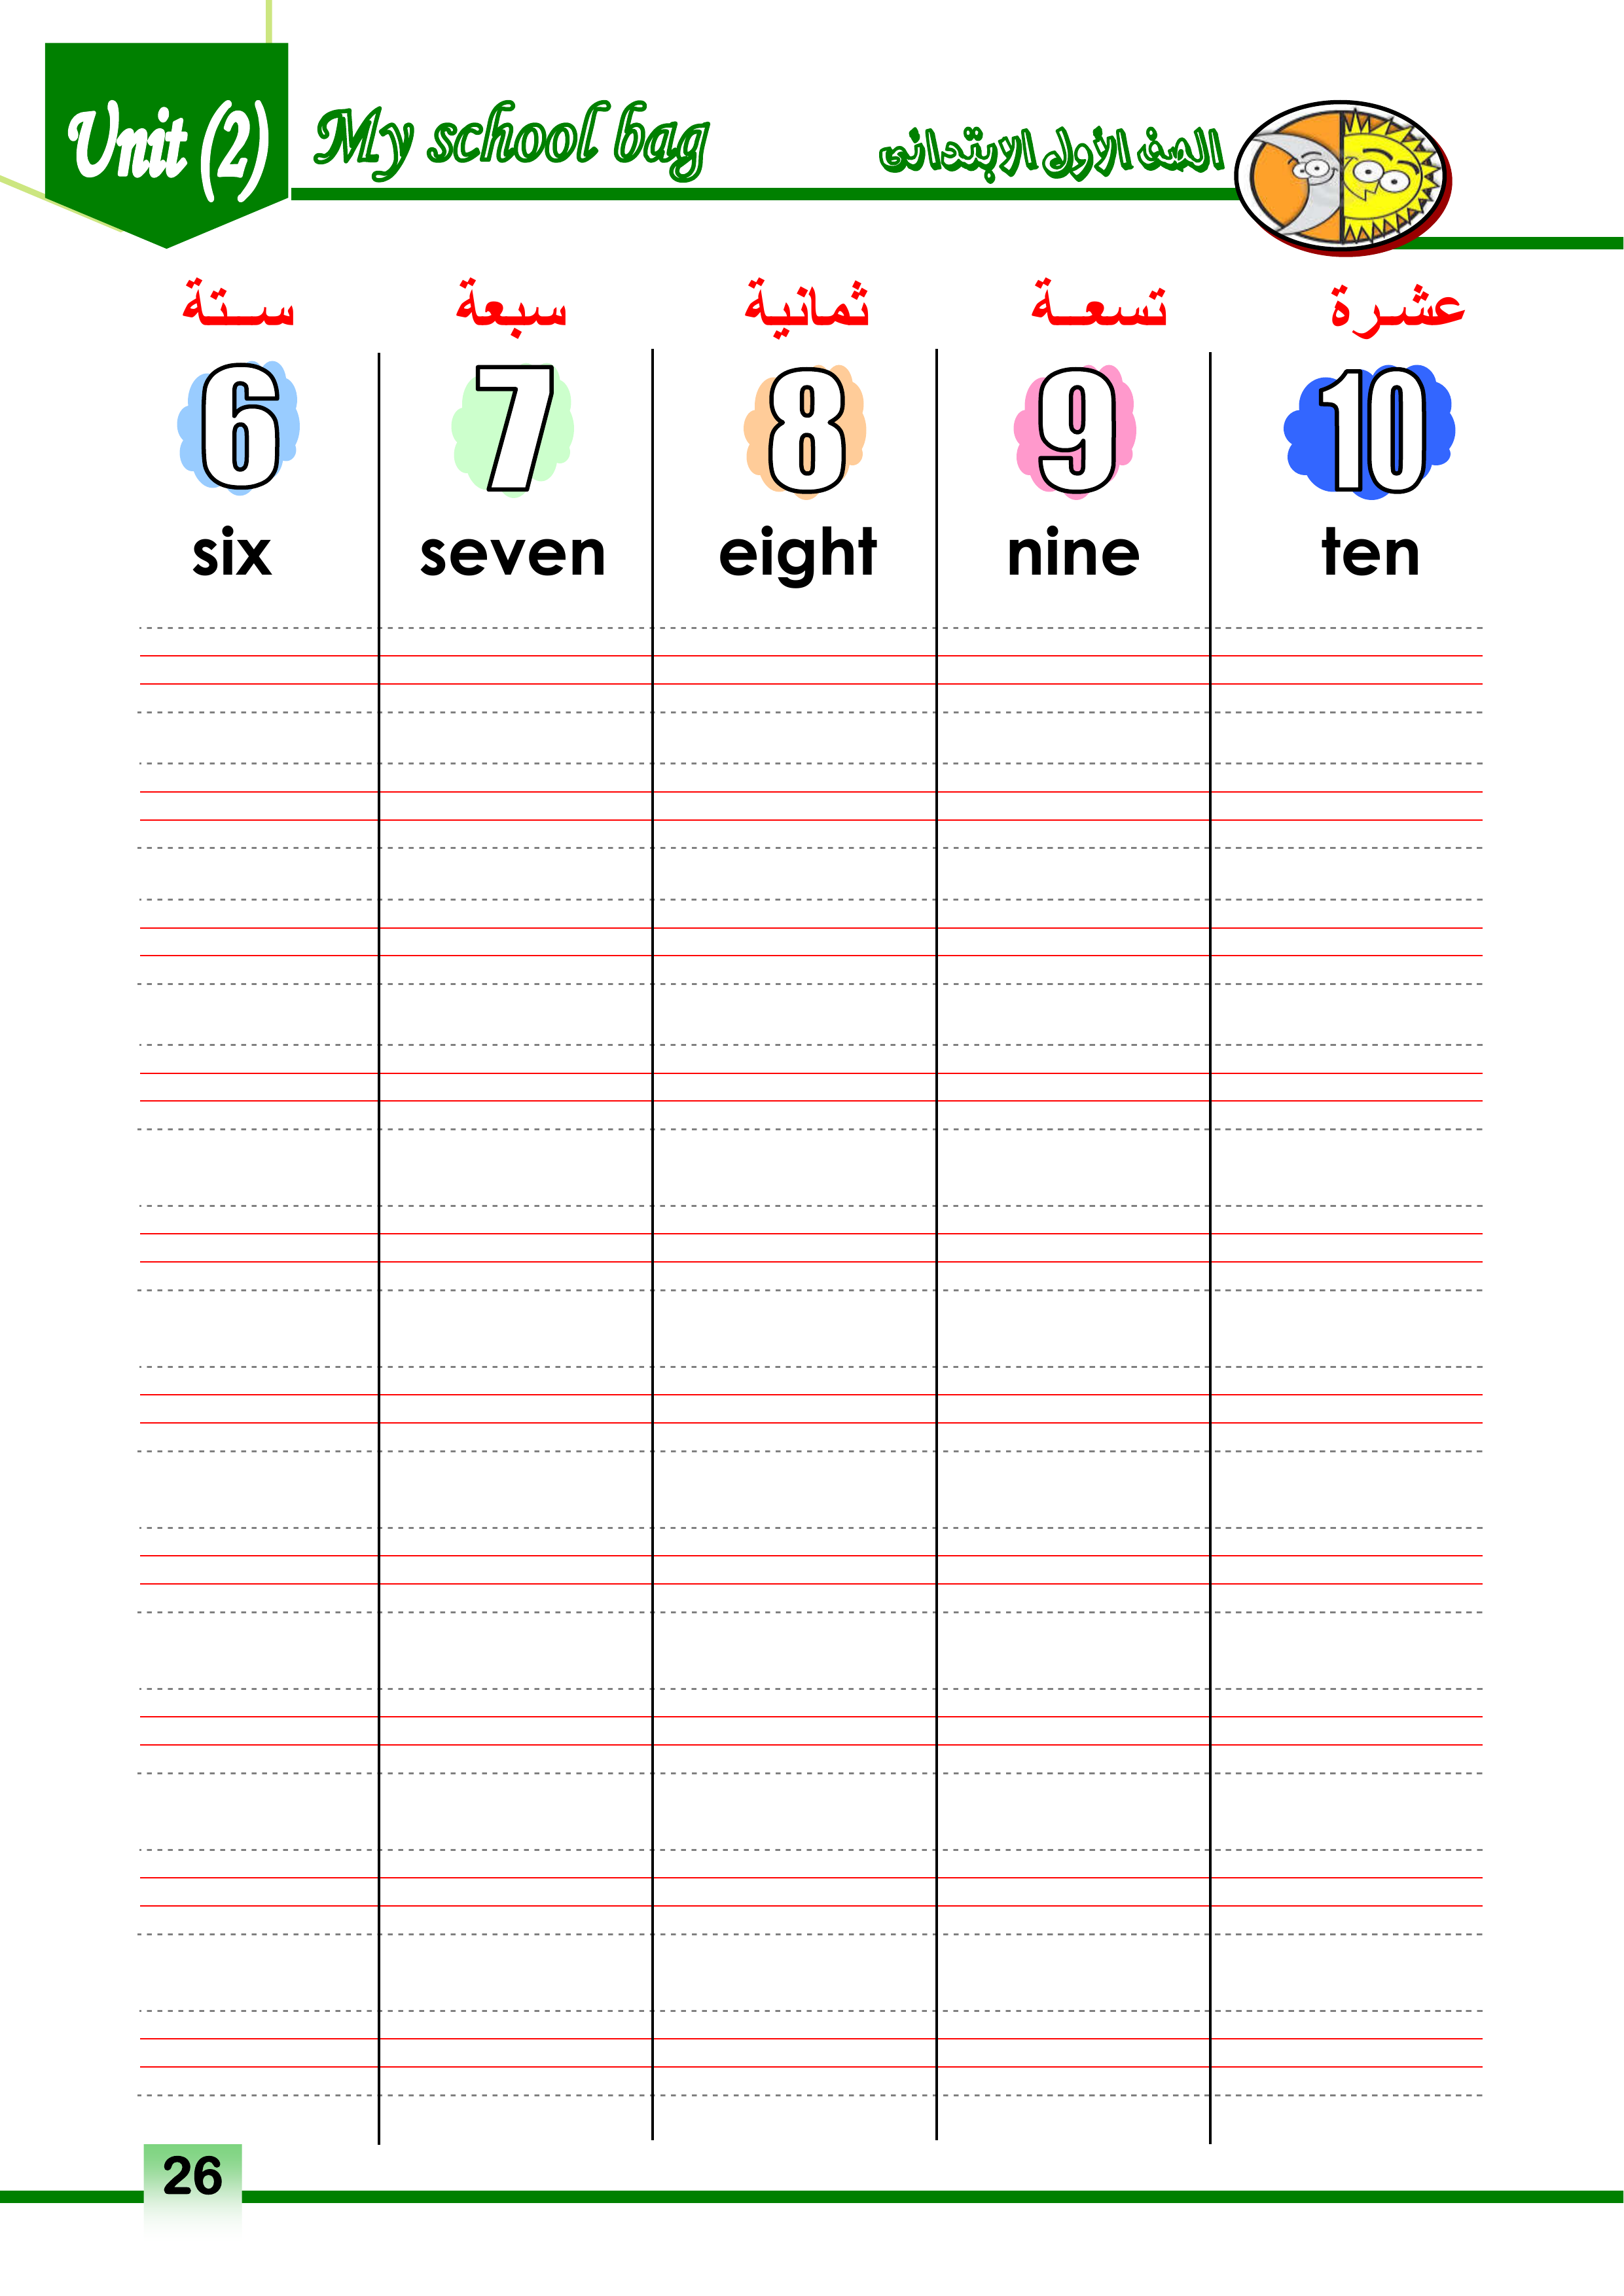 Unit (2) My school bag الصف الأول الابتدائى
ستة سبعة ثمانية تسعة عشرة
6 7 8 9 10
six seven eight nine ten
26